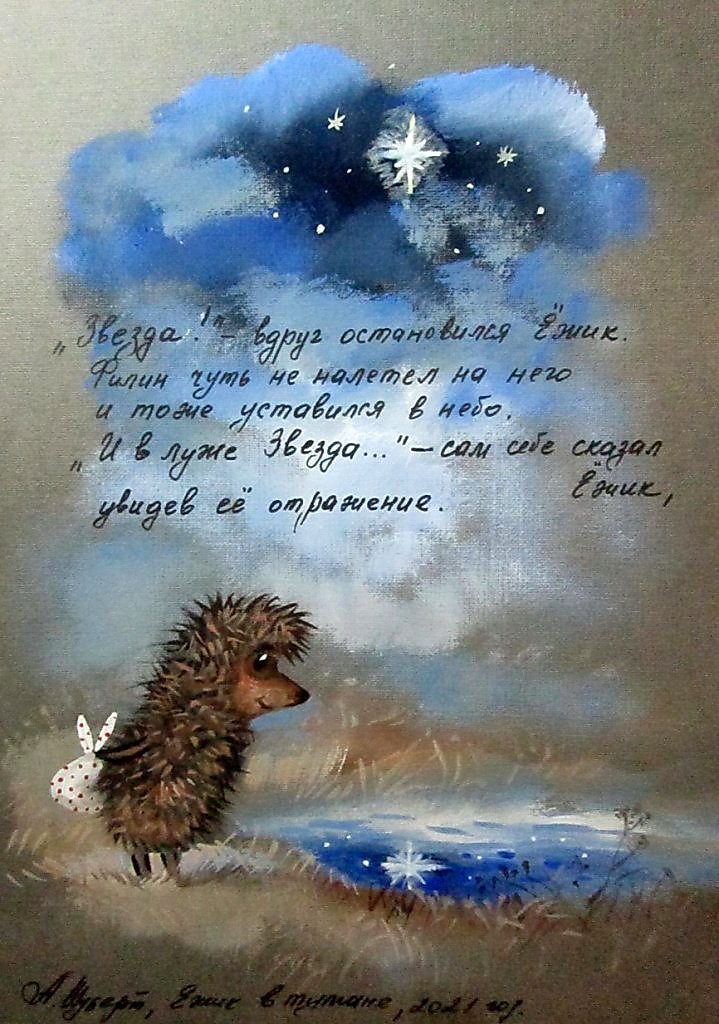 „Звезда!"– вдруг остановился Ёжик.
Филин чуть не налетел на него
и тоже уставился в небо.
„И в луже Звезда..."– сам себе сказал
Ёжик,
увидев её отражение.
А. Шуберт, Ёжик в тумане, 2021 год.